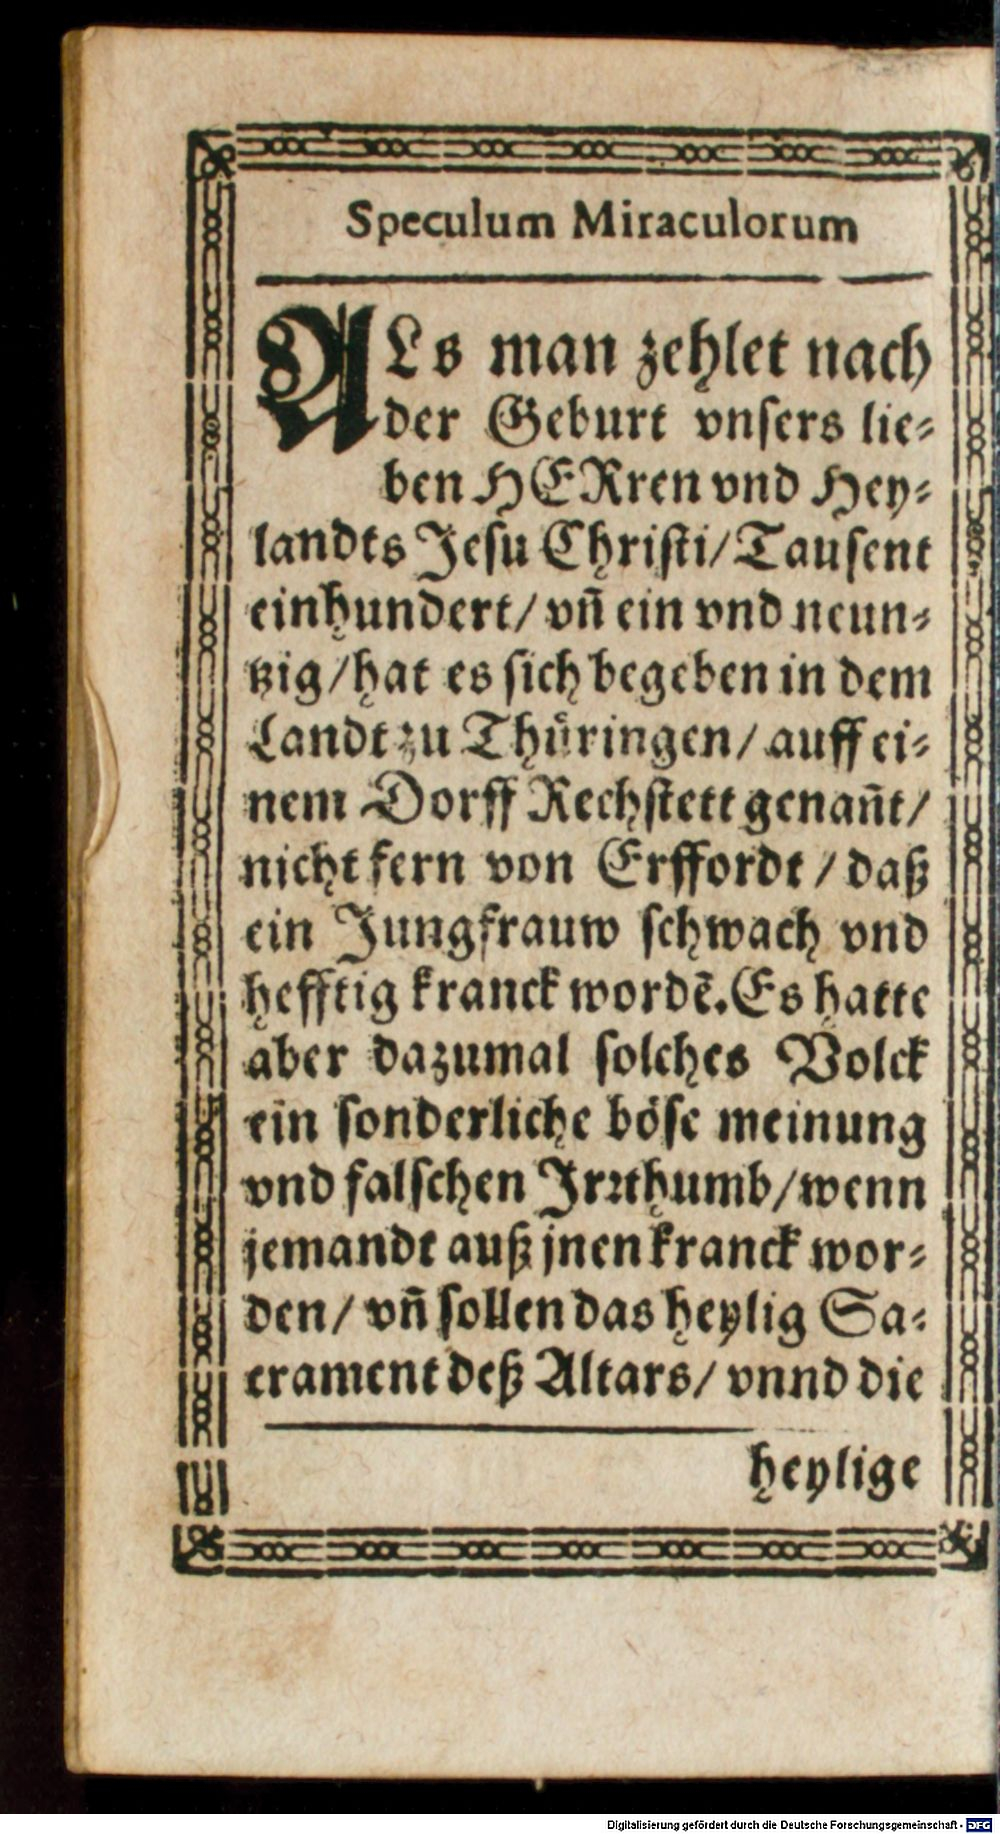 Speculum Miraculorum
ALs man zehlet nach
der Geburt vnsers lie⸗
ben HERren vnd Hey⸗
landts Jesu Christi/ Tausent
einhundert/ vñ ein vnd neun⸗
tzig/ hat es sich begeben in dem
Landt zu Thüringen/ auff ei⸗
nem Dorff Rechstett genañt/
nicht fern von Erffordt / daß
ein Jungfrauw schwach vnd
hefftig kranck wordẽ. Es hatte
aber dazumal solches Volck
ein sonderliche böse meinung
vnd falschen Jrꝛthumb/ wenn
jemandt auß jnen kranck wor⸗
den/ vñ sollen das heylig Sa⸗
crament deß Altars/ vnnd die
heylige
Digitalisierung gefördert durch die Deutsche Forschungsgemeinschaft - DFG